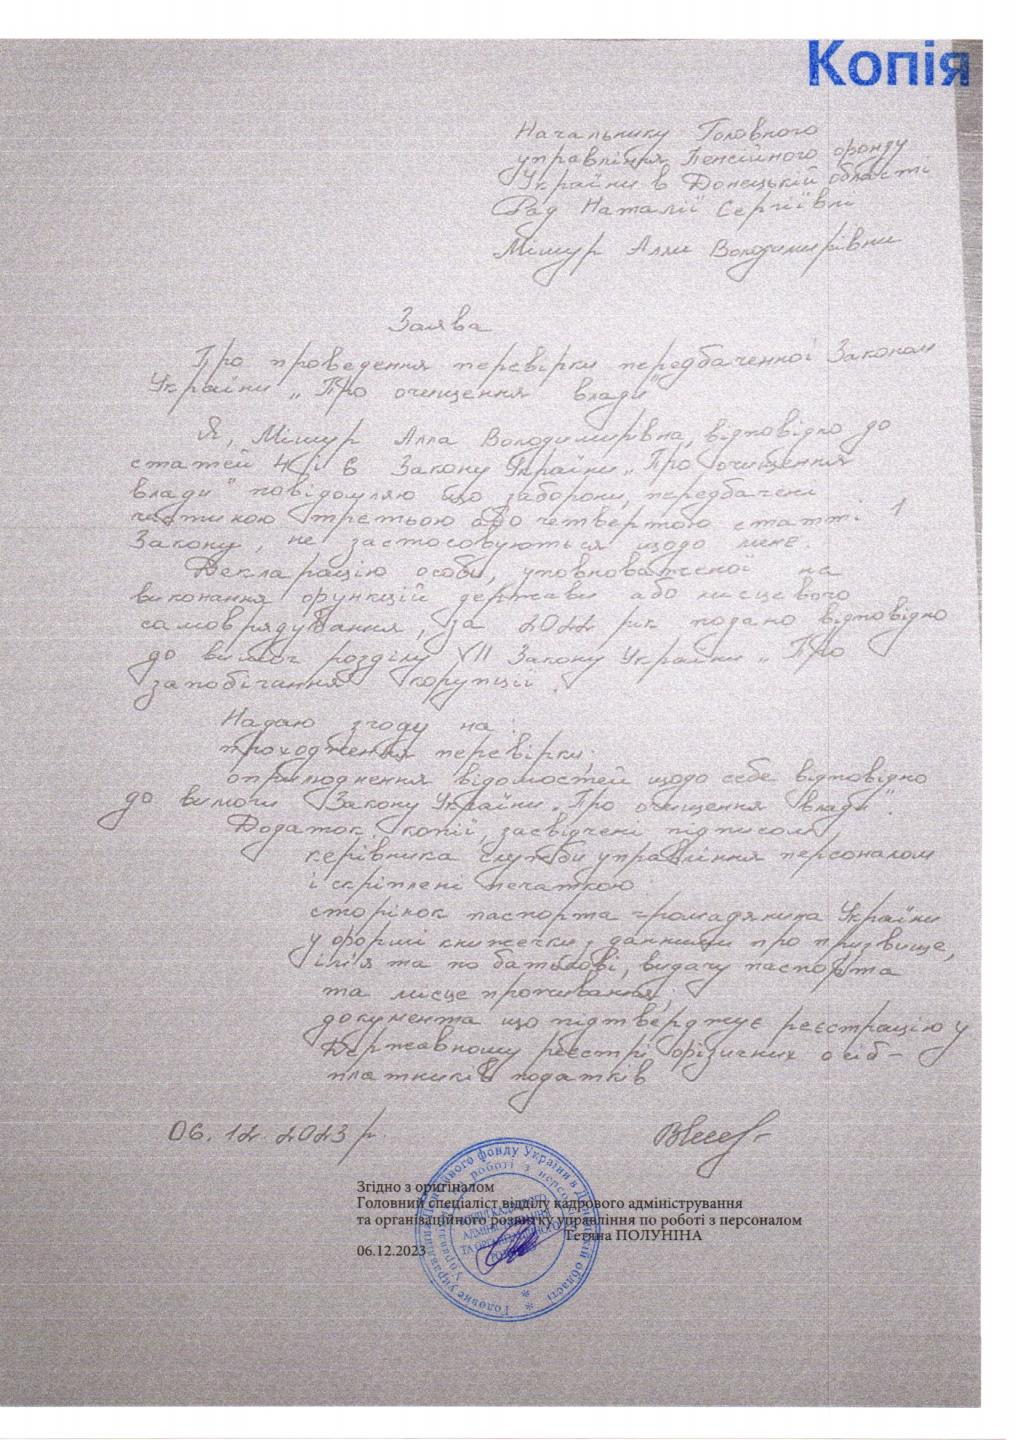 Копія
Начальнику Головного
управління Пенсійного фонду
України в Донецькій області
Рад Наталії Сергіївни
Мішур Алли Володимирівни
Заява
Про проведення перевірки передбаченної Законом
України „Про очищення влади"
Я, Мішур Алла Володимирівна, відповідно до
статей 4 і 6 Закону України „Про очищення
влади" повідомляю що заборони, передбачені
частиною третьою або четвертою статті 1
Закону, не застосовуються щодо мене.
Декларацію особи, уповноваженої на
виконання функцій держави або місцевого
самоврядування, за 2022 рік подано відповідно
до вимог розділу VII Закону України „Про
запобігання корупції".
Надаю згоду на:
проходження перевірки;
оприлюднення відомостей щодо себе відповідно
до вимоги Закону України „Про очищення влади".
Додаток: копії, засвідчені підписом
керівника служби управління персоналом
і скріплені печаткою:
сторінок паспорта громадянина України
у формі книжечки з данними про прізвище,
ім'я та по батькові, видачу паспорта
та місце проживання;
документа що підтверджує реєстрацію у
Державному реєстрі фізичних осіб-
платників податків
06.12.2023 р.
Згідно з оригіналом
Головний спеціаліст відділу кадрового адміністрування
та організаційного розвитку управління по роботі з персоналом
Тетяна ПОЛУНІНА
06.12.2023
Головне управління Пенсійного фонду України в Донецькій області
Управління по роботі з персоналом
ВІДДІЛ КАДРОВОГО
АДМІНІСТРУВАННЯ
ТА ОРГАНІЗАЦІЙНОГО
РОЗВИТКУ